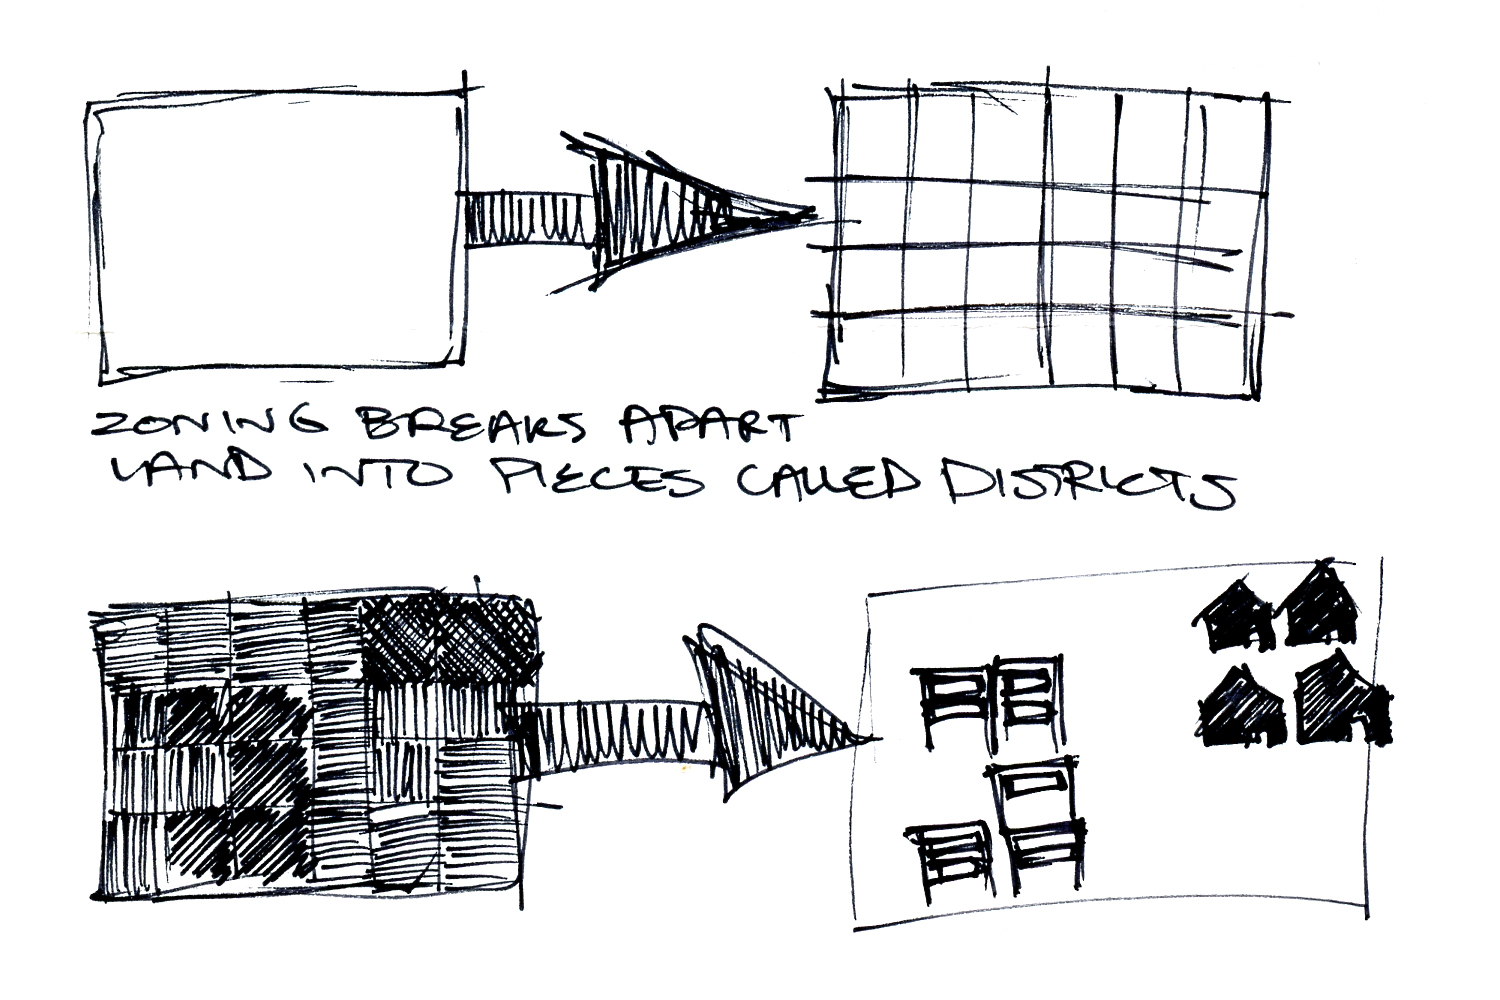 ZONING BREAKS APART
LAND INTO PIECES CALLED DISTRICTS